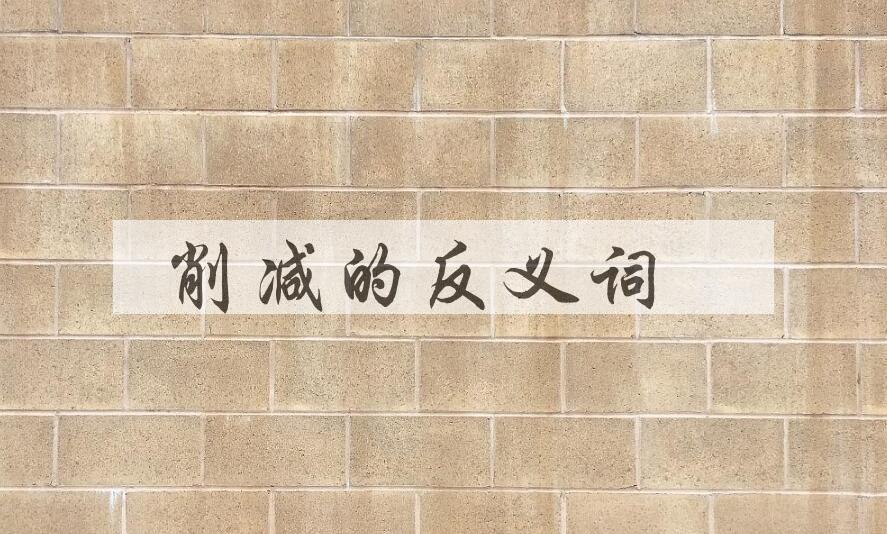 削减的反义词